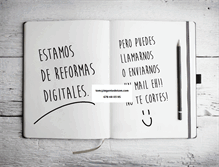 ESTAMOS
DE REFORMAS
DIGITALES.
PERO PUEDES
LLAMARNOS
O ENVIARNOS
MAIL EH!!
TE CORTES!